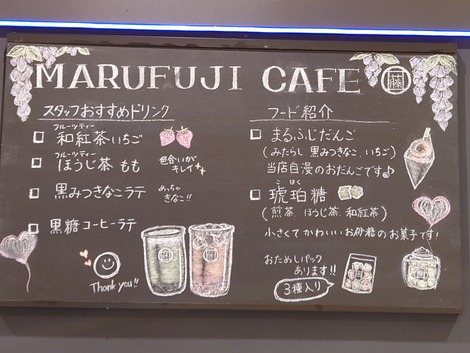 MARUFUJI CAFE 藤
スタッフおすすめドリンク
フルーツティー
和紅茶いちご
フルーツティー
ほうじ茶 もも
色合いが
キレイ
黒みつきなこラテ
めっちゃ
きなこ!!
黒糖コーヒーラテ
Thank you!!
フード紹介
まるふじだんご
(みたらし 黒みつきなこ、いちご)
当店自慢のおだんごです♪
こはく
琥珀糖
(煎茶、ほうじ茶、和紅茶)
小さくてかわいいお砂糖のお菓子です!
おためしパック
あります!!
3種入り